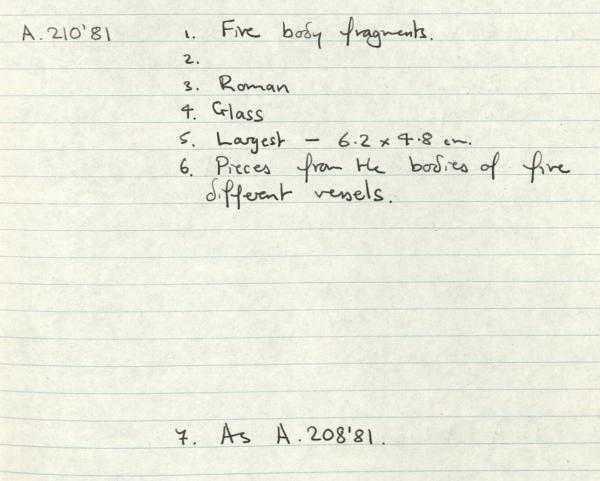 A.210'81 1. Five body fragments.
2.
3. Roman
4. Glass
5. Largest – 6.2 x 4.8 cm.
6. Pieces from the bodies of five
different vessels.
7. As A.208'81.